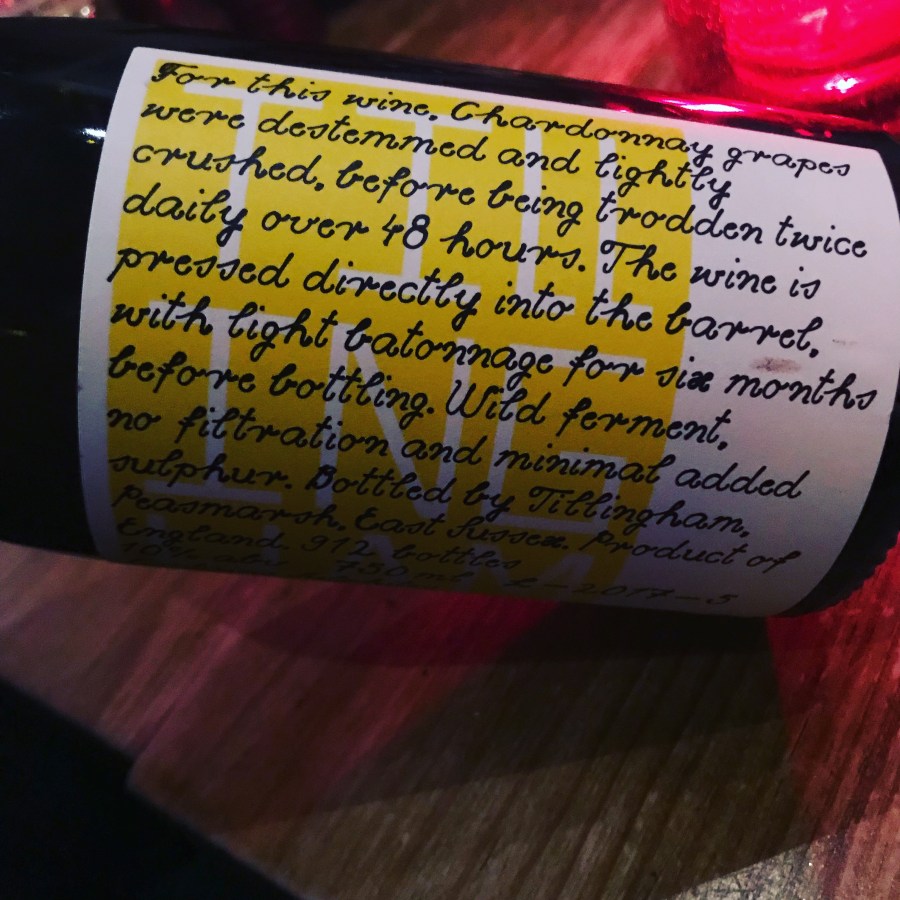 For this wine, Chardonnay grapes
were destemmed and lightly
crushed, before being trodden twice
daily over 48 hours. The wine is
pressed directly into the barrel,
with light batonnage for six months
before bottling. Wild ferment,
no filtration and minimal added
sulphur. Bottled by Tillingham,
Peasmarsh, East Sussex. Product of
England. 912 bottles
10% abv 750 ml L-2017-5